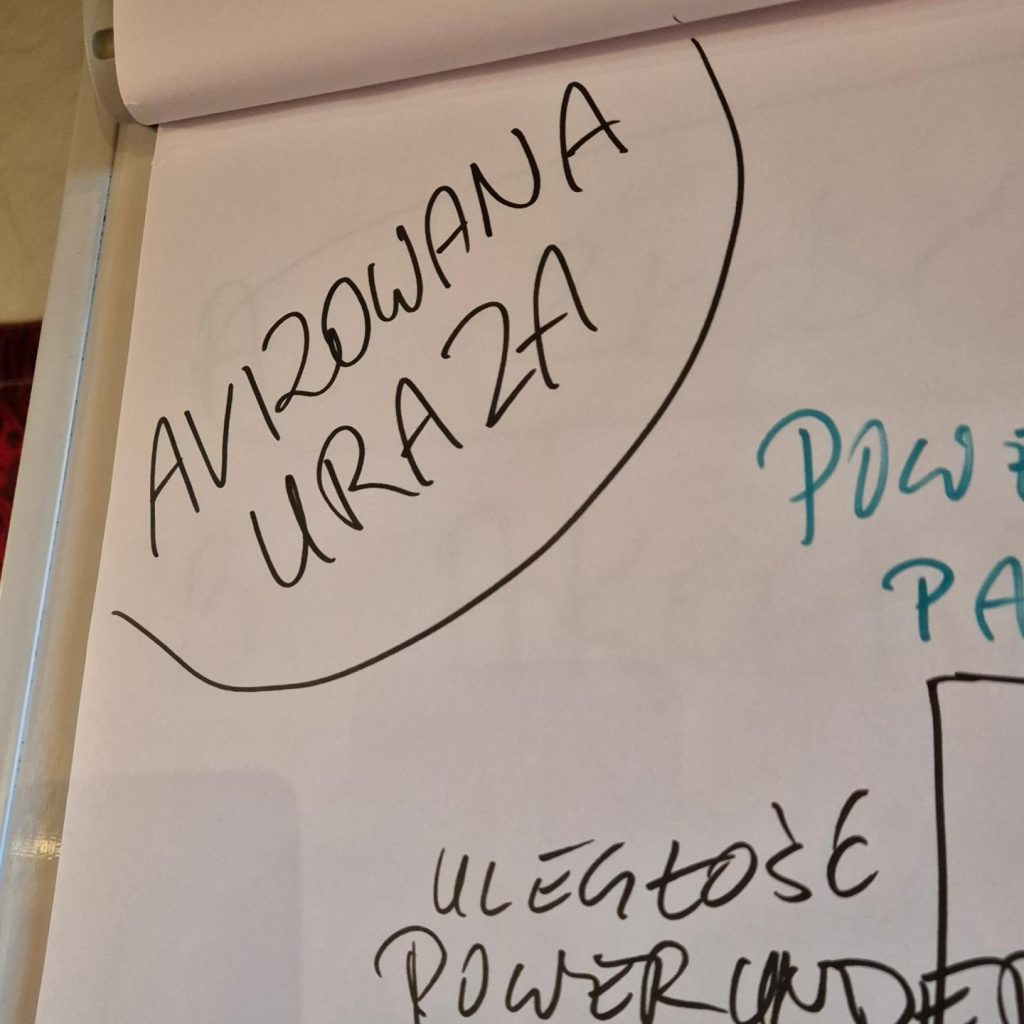 AVIZOWANA
URAZA
POWE
PA
ULEGŁOŚĆ
POWER UNDER